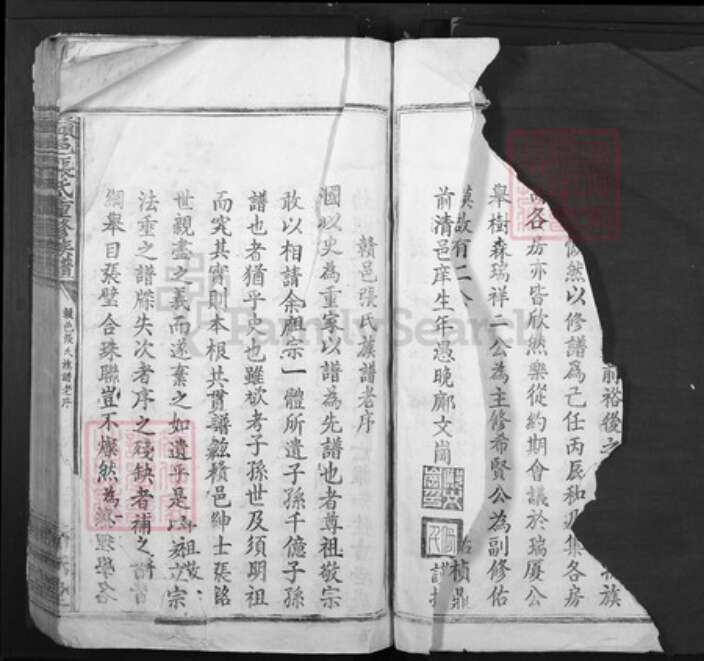 前裕後之
族
慨然以修譜爲己任丙辰秋
集各房
各房亦皆欣然樂從約期會議於瑞廈公
舉樹森瑞祥二公為主修希賢公為副修佑
禎鼎
故有二
前清邑庠生年愚晚鄺文崗
贛邑張氏族譜老序
國以史為重家以譜為先譜也者尊祖敬宗
敢以相請余祖宗一體所遺子孫千億子孫
譜也者猶乎史也雖欲考子孫世及須明祖
而究其實則本根共貫譜茲贛邑紳士張銘
世親盡之義而遂棄之如遺乎是故立宗
祖敬
法重之譜牒失次者序之殘缺者補之
綱舉目張璧合珠聯豈不燦然為
理學名
贛邑張氏重修族譜
贛邑張氏族譜老序
FamilySearch